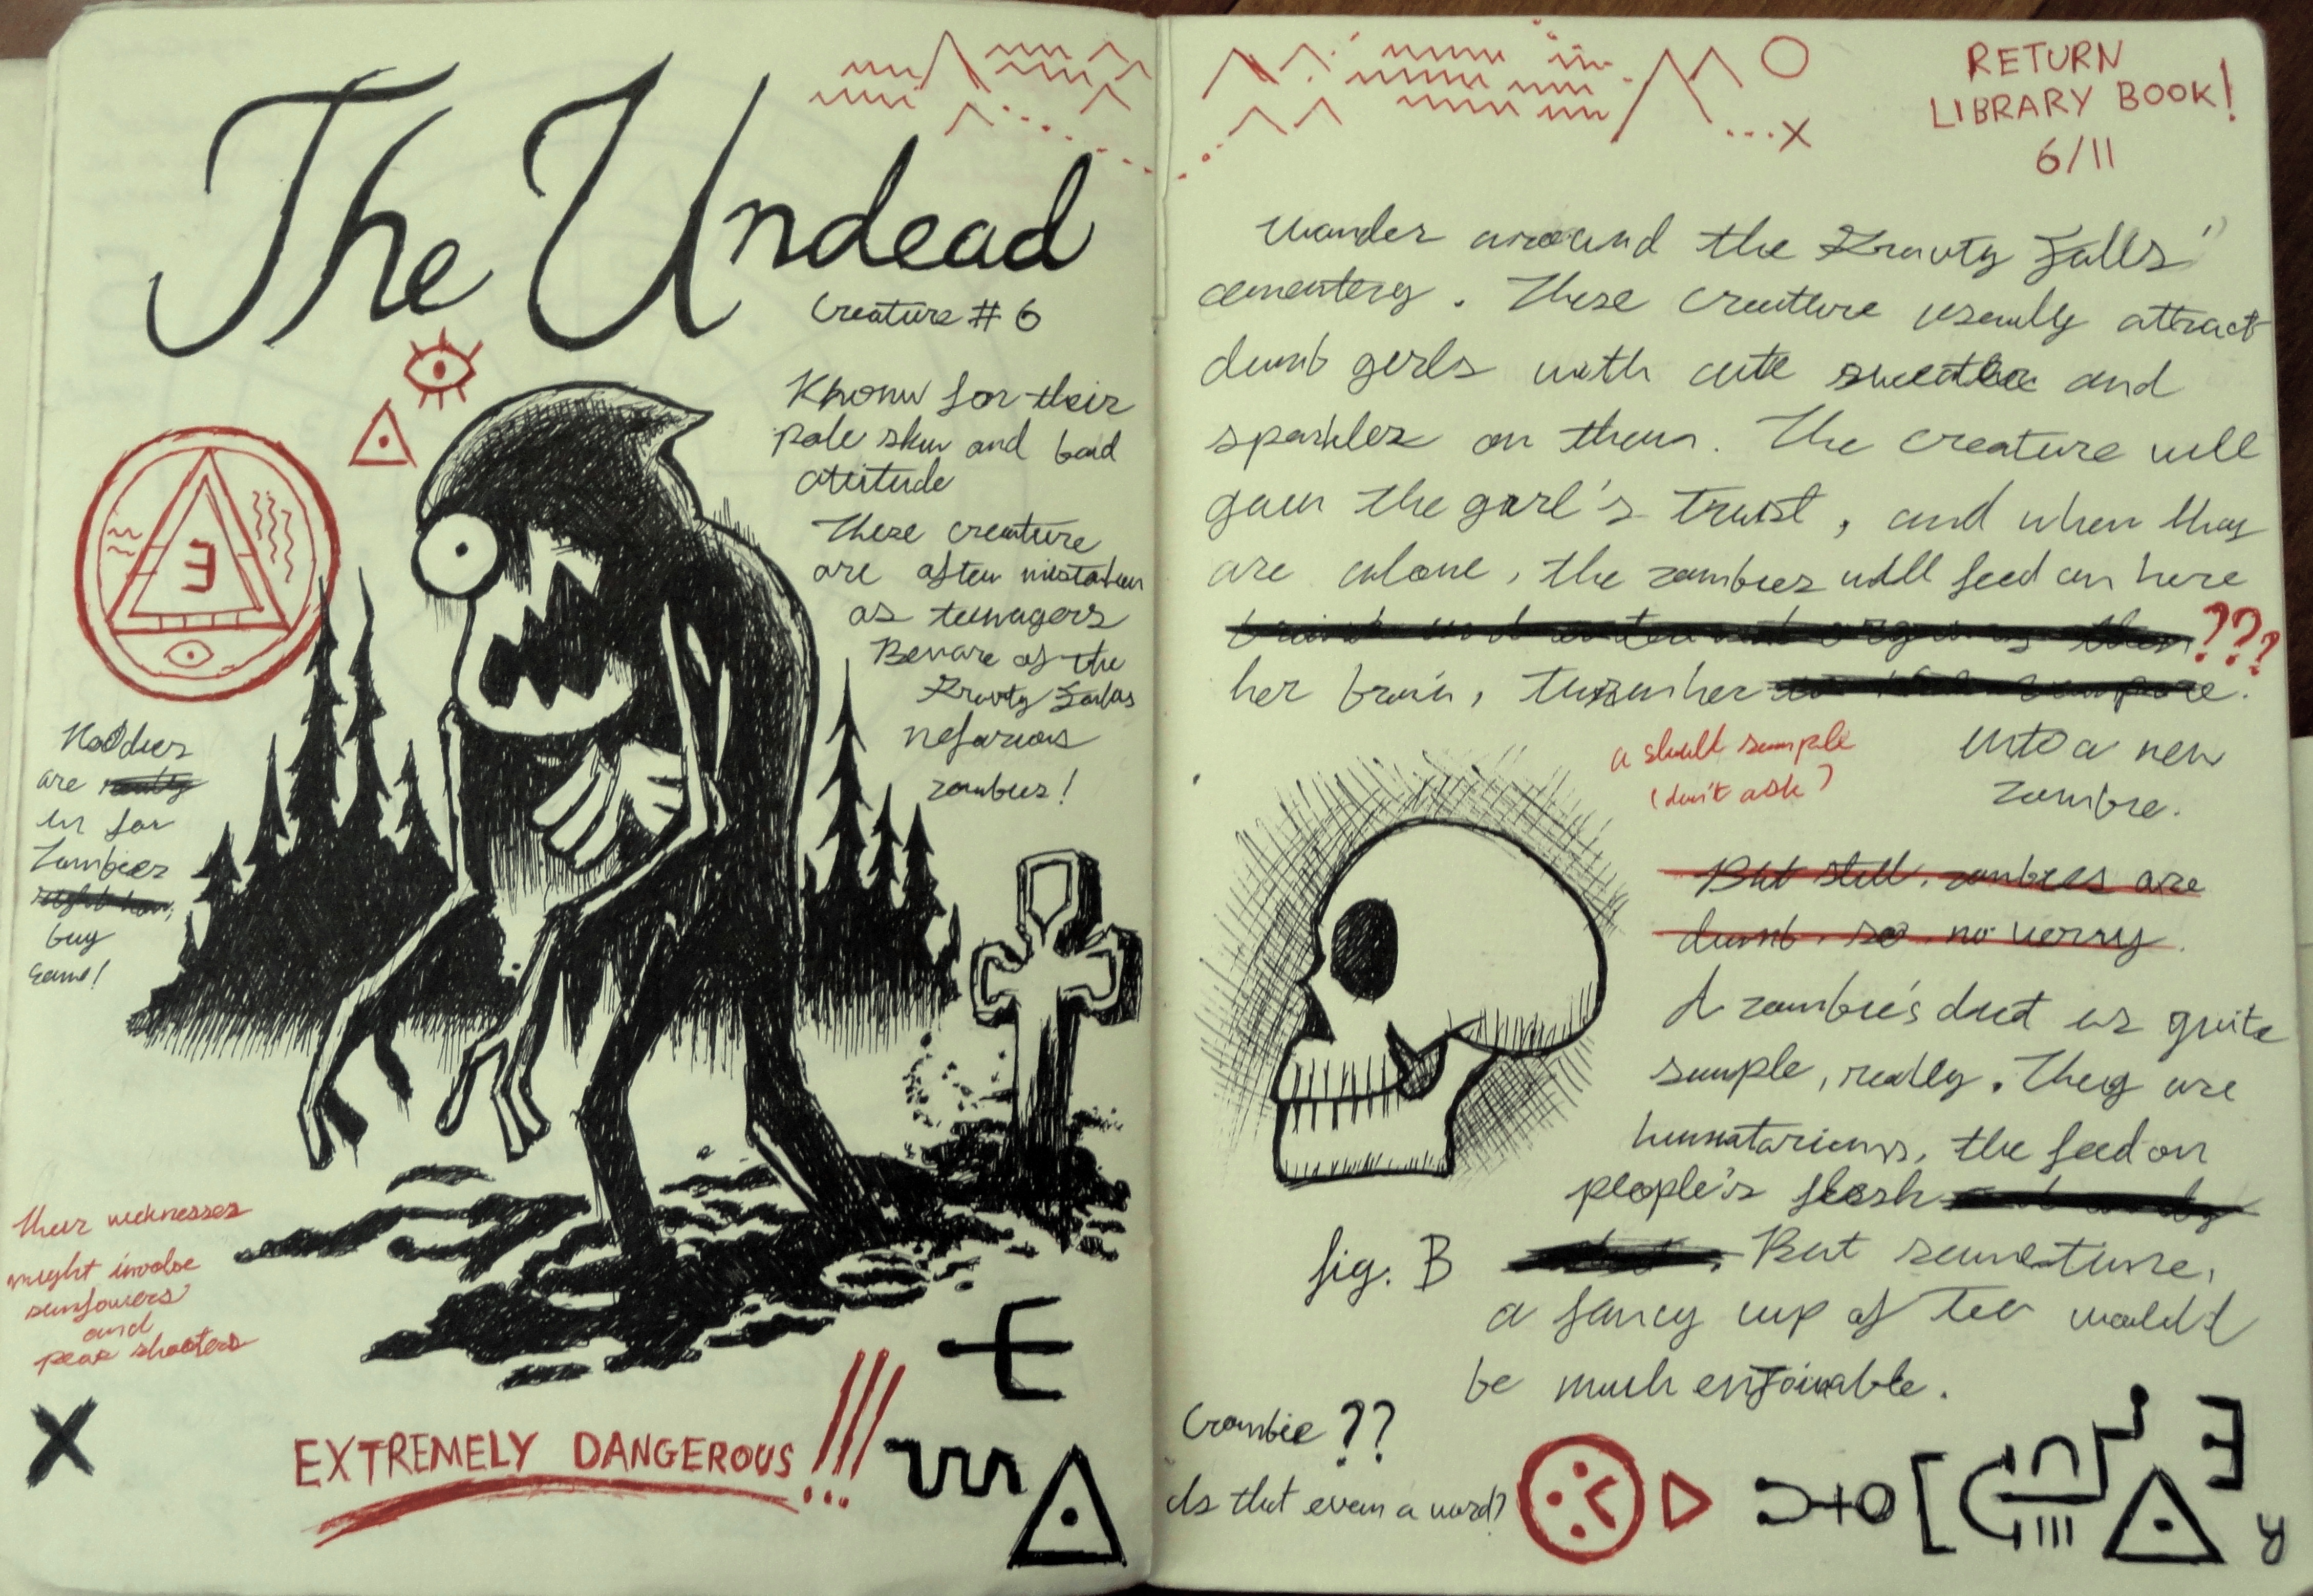 The Undead
Creature # 6
Known for their
pale skin and bad
attitude
These creature
are often mistaken
as teenagers
Beware of the
Gravity Falls
nefarious
zombies!
Hoodies
are really
in for
Zombies
right now,
buy
same!
their weknesses
might involve
sunflowers
and
pear shooters
X
EXTREMELY DANGEROUS!!!
RETURN
LIBRARY BOOK!
6/11
Wander around the Gravity Falls'
cementery. These creature usually attract
dumb girls with cute sweater and
sparkles on them. The creature will
gain the girl's trust, and when they
are alone, the zombies will feed on here
???
her brain, turn her
into a new
zombie.
a skull sample
(don't ask)
But still, zombies are
dumb, so no worry.
A zombie's diet is quite
simple, really. They are
humatarians, the feed on
people's flesh
But sometime,
a fancy cup of tea would
be much enjoiable.
fig. B
Crombie??
Is that even a word?